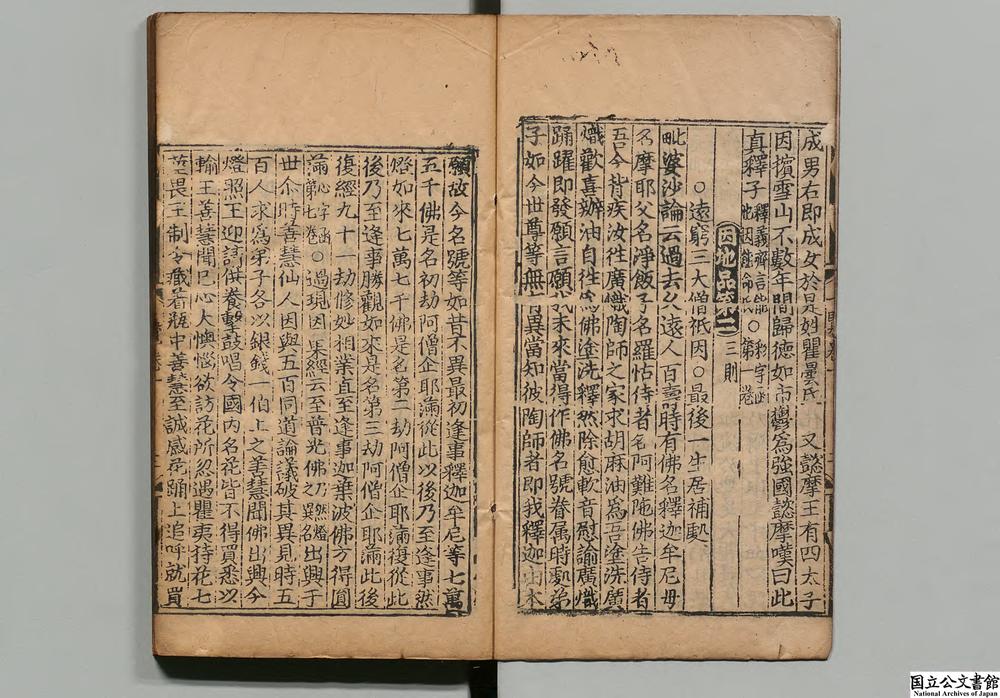 成男右即成女於是姓瞿曇氏 又懿摩王有四太子
因擯雪山不數年間歸德如市欝爲強國懿摩嘆曰此
真釋子 釋義齊言能 ○ 第一卷
因地品第二 三則
○遠窮三大僧祇因○最後一生居補處
毗婆沙論云過去久遠人百壽時有佛名釋迦牟尼母
名摩耶父名淨飯子名羅怙侍者名阿難陁佛告侍者
吾今背疾汝往廣熾陶師之家求胡麻油爲吾塗洗廣
熾歡喜辦油自往爲佛塗洗釋然除愈軟音慰諭廣熾
踊躍即發願言願我未來當得作佛名號眷属時處弟
子如今世尊等無有異當知彼陶師者即我釋迦由本
願故今名號等如昔不異最初逢事釋迦牟尼等七萬
五千佛是名初劫阿僧企耶滿從此以後乃至逢事然
燈如來七萬七千佛是名第二劫阿僧企耶滿復從此
後乃至逢事勝觀如來是名第三劫阿僧企耶滿此後
復經九十一劫修妙相業直至逢事迦葉波佛方得圓
滿 心字函第七卷 ○過現因果經云至普光佛 乃然燈之異名 出興于
世尒時善慧仙人因與五百同道論議破其異見時五
百人求爲弟子各以銀錢一伯上之善慧聞佛出興今
燈照王迎請供養擊鼓唱令國内名花皆不得買悉以
輸王善慧聞已心大懊惱欲訪花所忽遇瞿夷持花七
莖畏王制令藏着瓶中善慧至誠感花踊上追呼就買
国立公文書館
National Archives of Japan